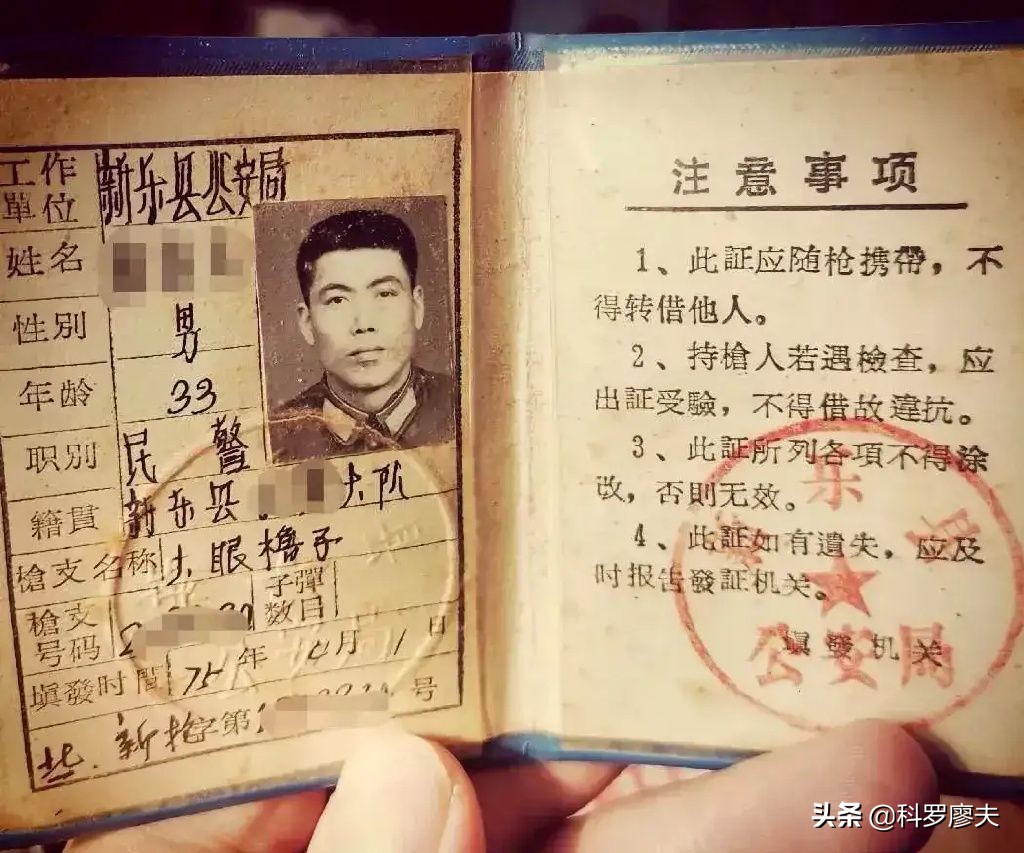 工作單位 新乐县公安局
姓名
性別 男
年龄 33
职別 民警
籍貫 新乐县 大队
槍支名称 大眼橹子
槍支号码 子彈数目
填發时間 75年10月1日
新枪字第 号
注意事项
1、此証应随枪携帶，不
得转借他人。
2、持槍人若遇檢查，应
出証受驗，不得借故違抗。
3、此証所列各項不得涂
改，否則无效。
4、此証如有遺失，应及
时报告發証机关。
填發机关
乐
公安局
头条 @科罗廖夫